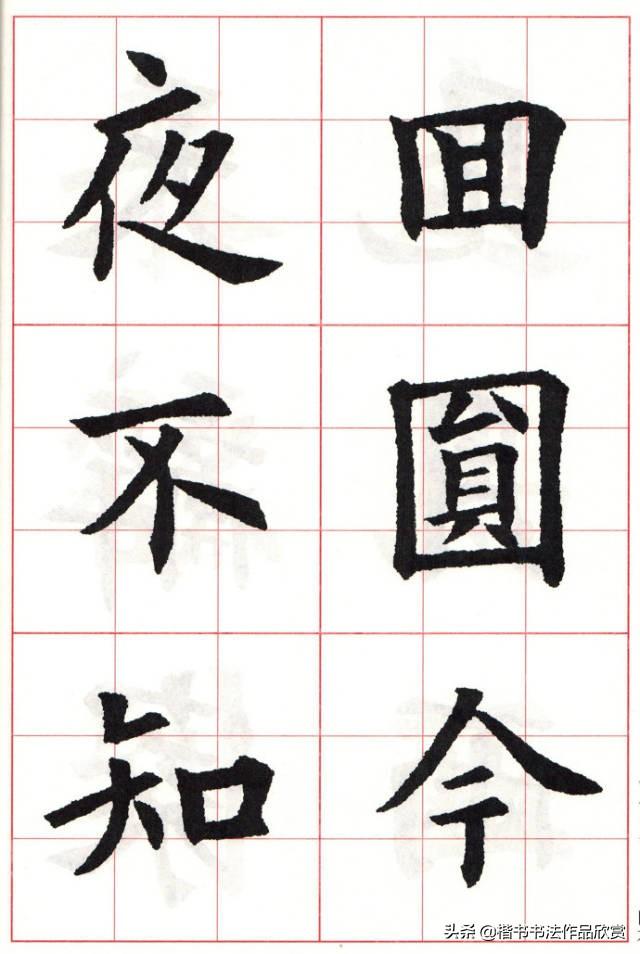 回圓今
夜不知
头条 @楷书书法作品欣赏